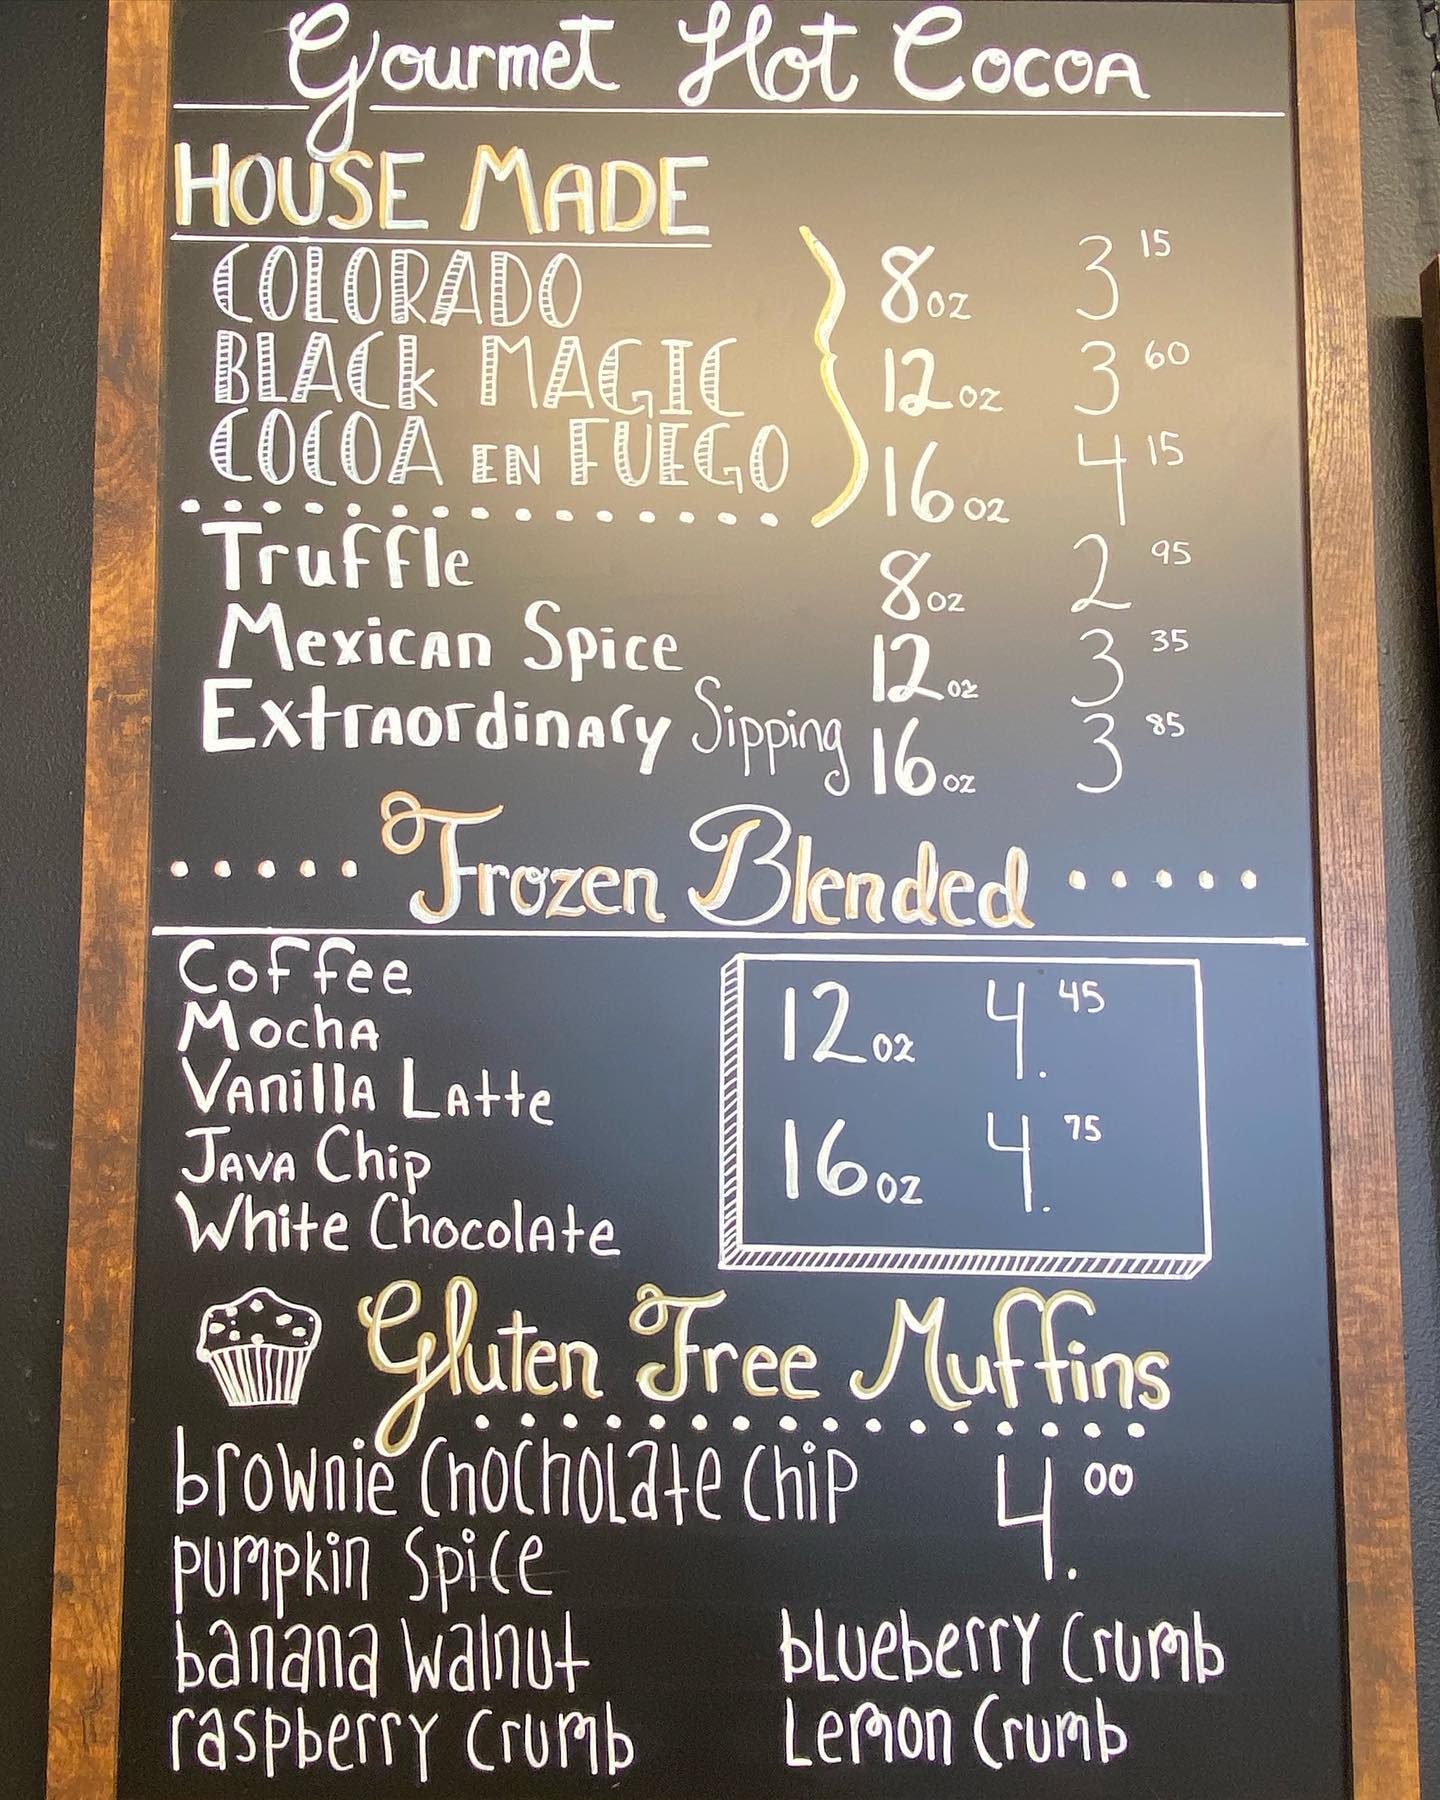 Gourmet Hot Cocoa
HOUSE MADE
COLORADO 8oz 3 15
BLACK MAGIC 12oz 3 60
COCOA EN FUEGO 16oz 4 15
Truffle 8oz 2 95
Mexican Spice 12oz 3 35
Extraordinary Sipping 16oz 3 85
Frozen Blended
Coffee 12oz 4. 45
Mocha
Vanilla Latte
Java Chip 16oz 4. 75
White Chocolate
Gluten Free Muffins
brownie Chocholate Chip 4. 00
pumpkin Spice
banana walnut blueberry Crumb
raspberry crumb Lemon Crumb